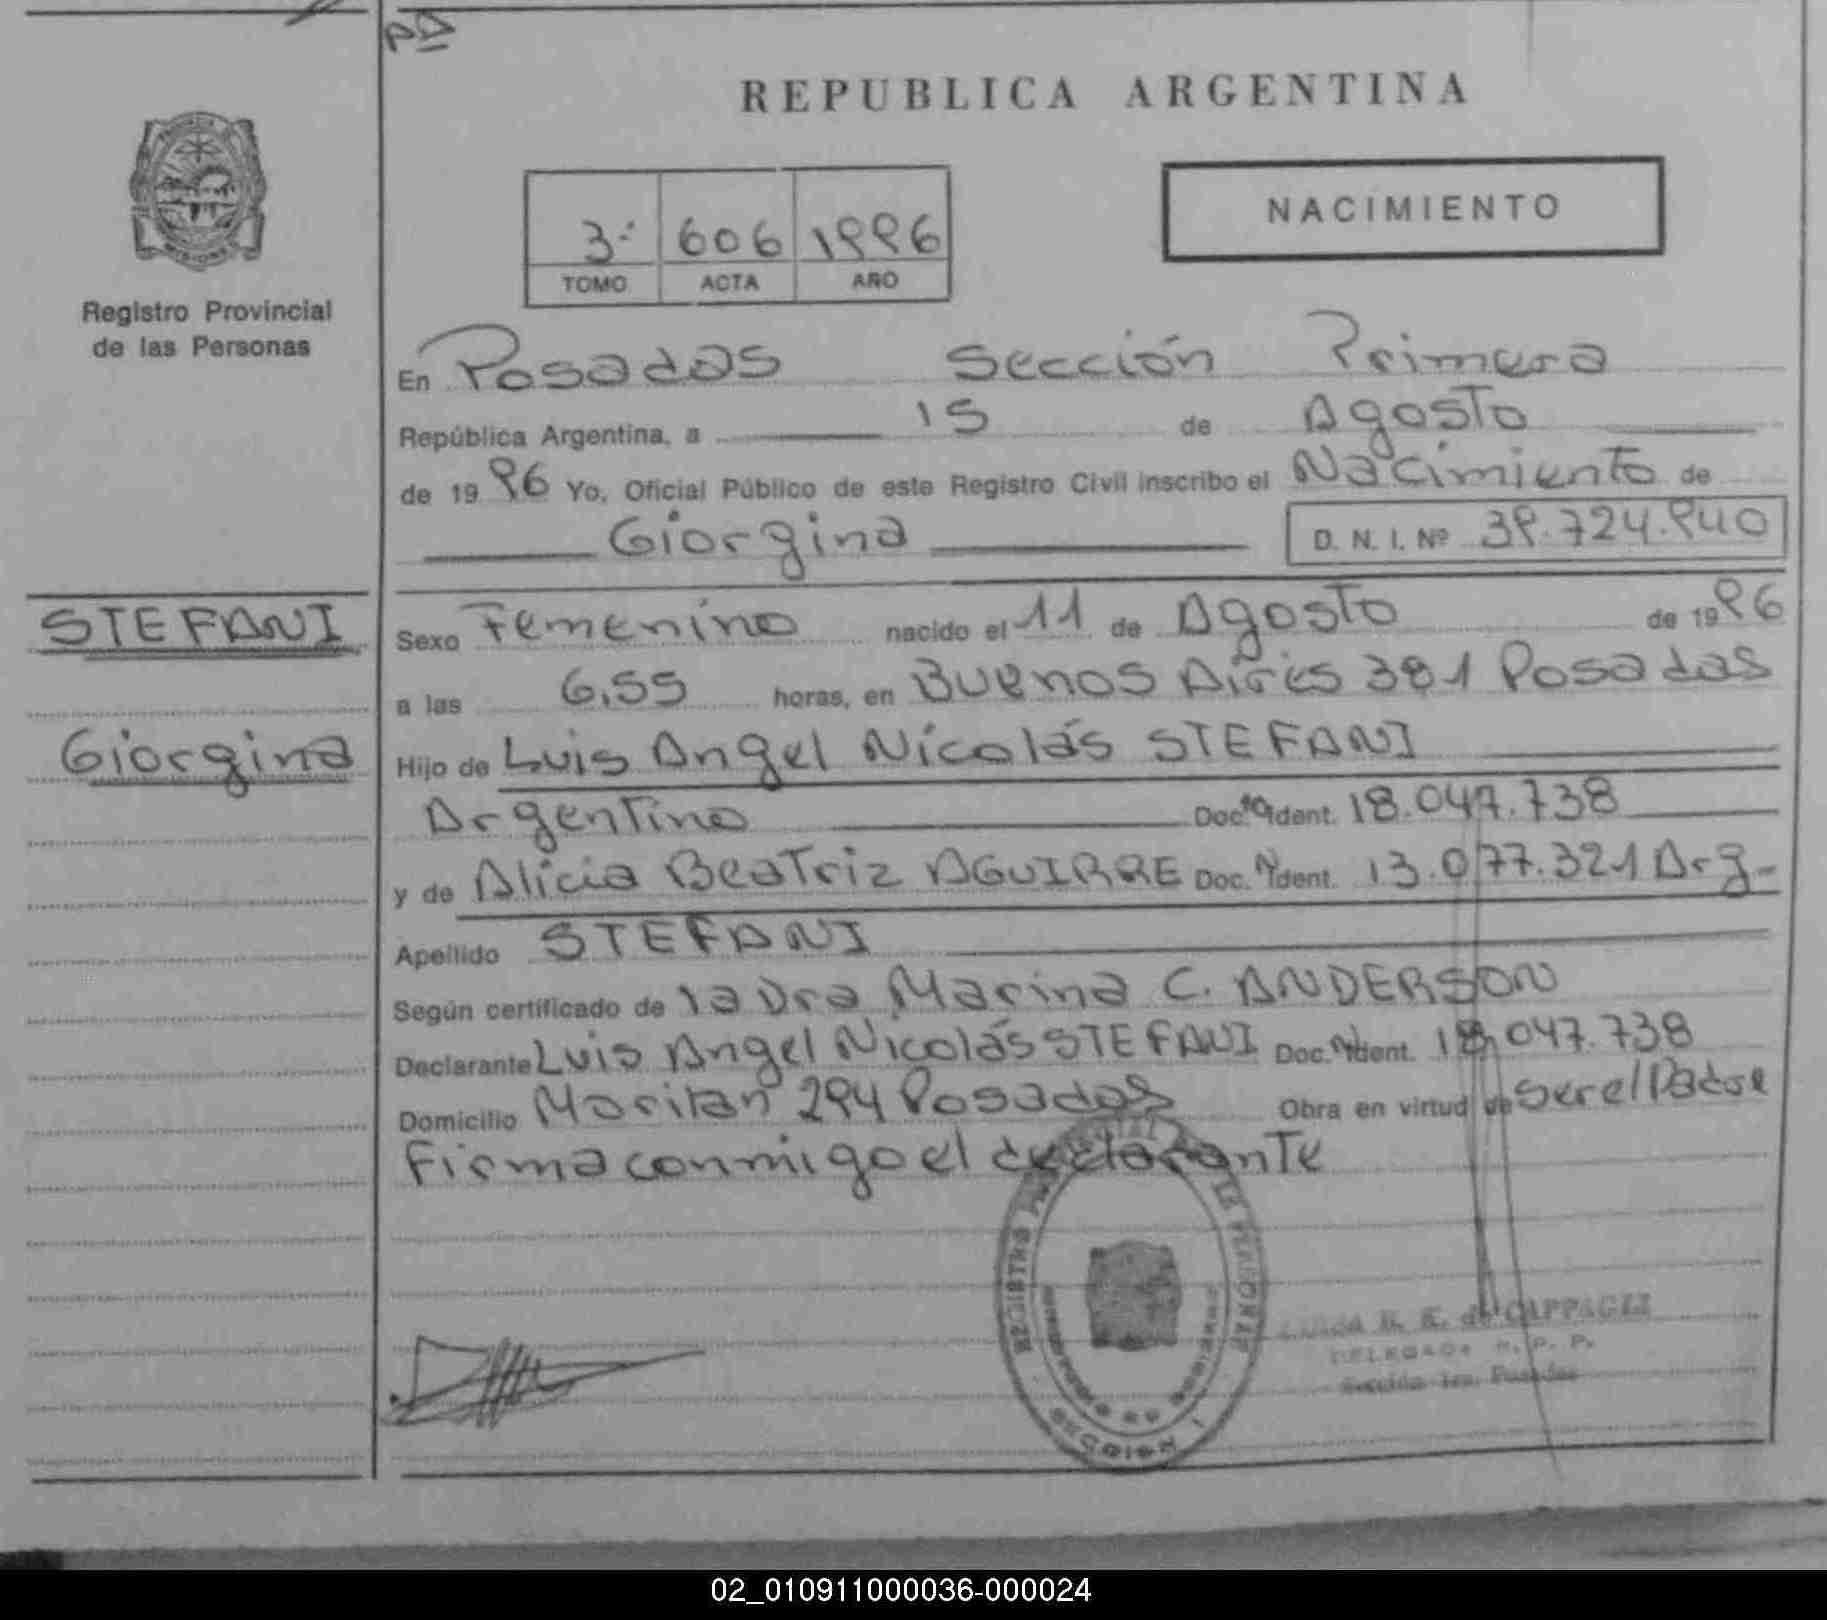 PD
REPUBLICA ARGENTINA
NACIMIENTO
3· 606 1996
TOMO ACTA AÑO
Registro Provincial
de las Personas
En Posadas Sección Primera
República Argentina, a 15 de Agosto
de 1996 Yo, Oficial Público de este Registro Civil inscribo el Nacimiento de
Giorgina D. N. I. Nº 39.724.940
STEFANI
Sexo Femenino nacido el 11 de Agosto de 1996
a las 6,55 horas, en Buenos Aires 381 Posadas
Giorgina
Hijo de Luis Angel Nicolás STEFANI
Argentino Doc. Ident. 18.047.738
y de Alicia Beatriz AGUIRRE Doc. Ident. 13.077.321 Arg-
Apellido STEFANI
Según certificado de la Dra Marina C. ANDERSON
Declarante Luis Angel Nicolás STEFANI Doc. Ident. 18.047.738
Domicilio 294 Posadas Obra en virtud de ser el Padre
Firma conmigo el declarante
REGISTRO PERSONAS
SECCION I
R. E. de CAPPAGLI
DELEGADA R. P. P.
Sección 1ra. Posadas
02_010911000036-000024